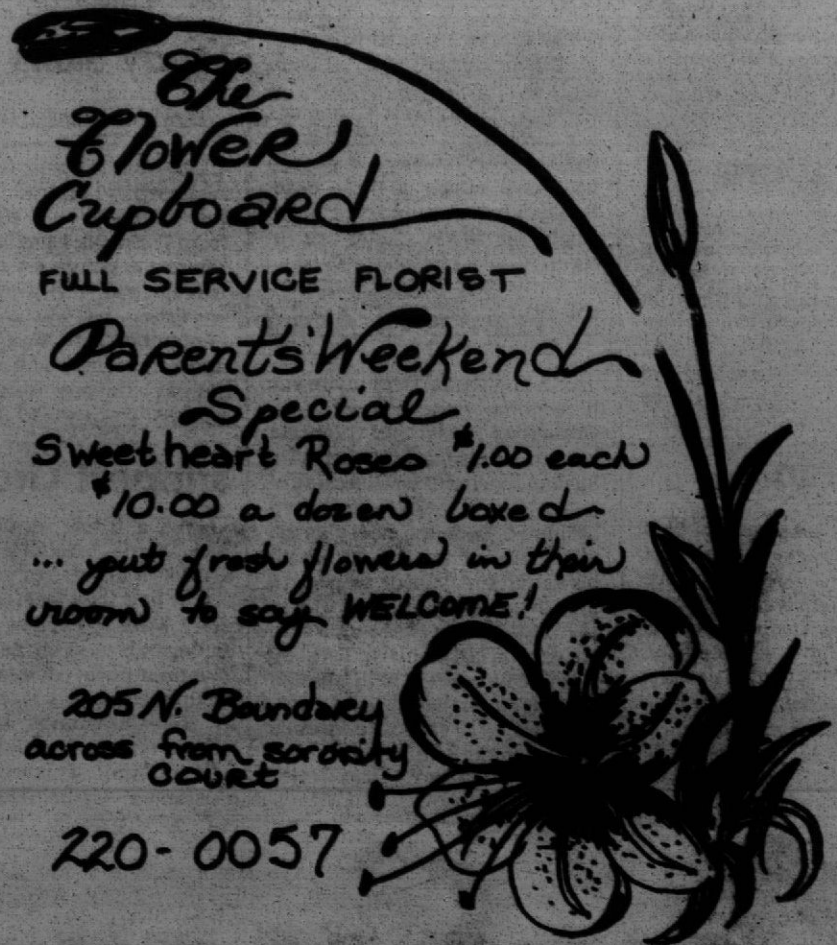 The
Flower
Cupboard
FULL SERVICE FLORIST
Parents' Weekend
Special
Sweetheart Roses $1.00 each
$10.00 a dozen boxed
... put fresh flowers in their
room to say WELCOME!
205 N. Boundary
across from sorority
COURT
220-0057